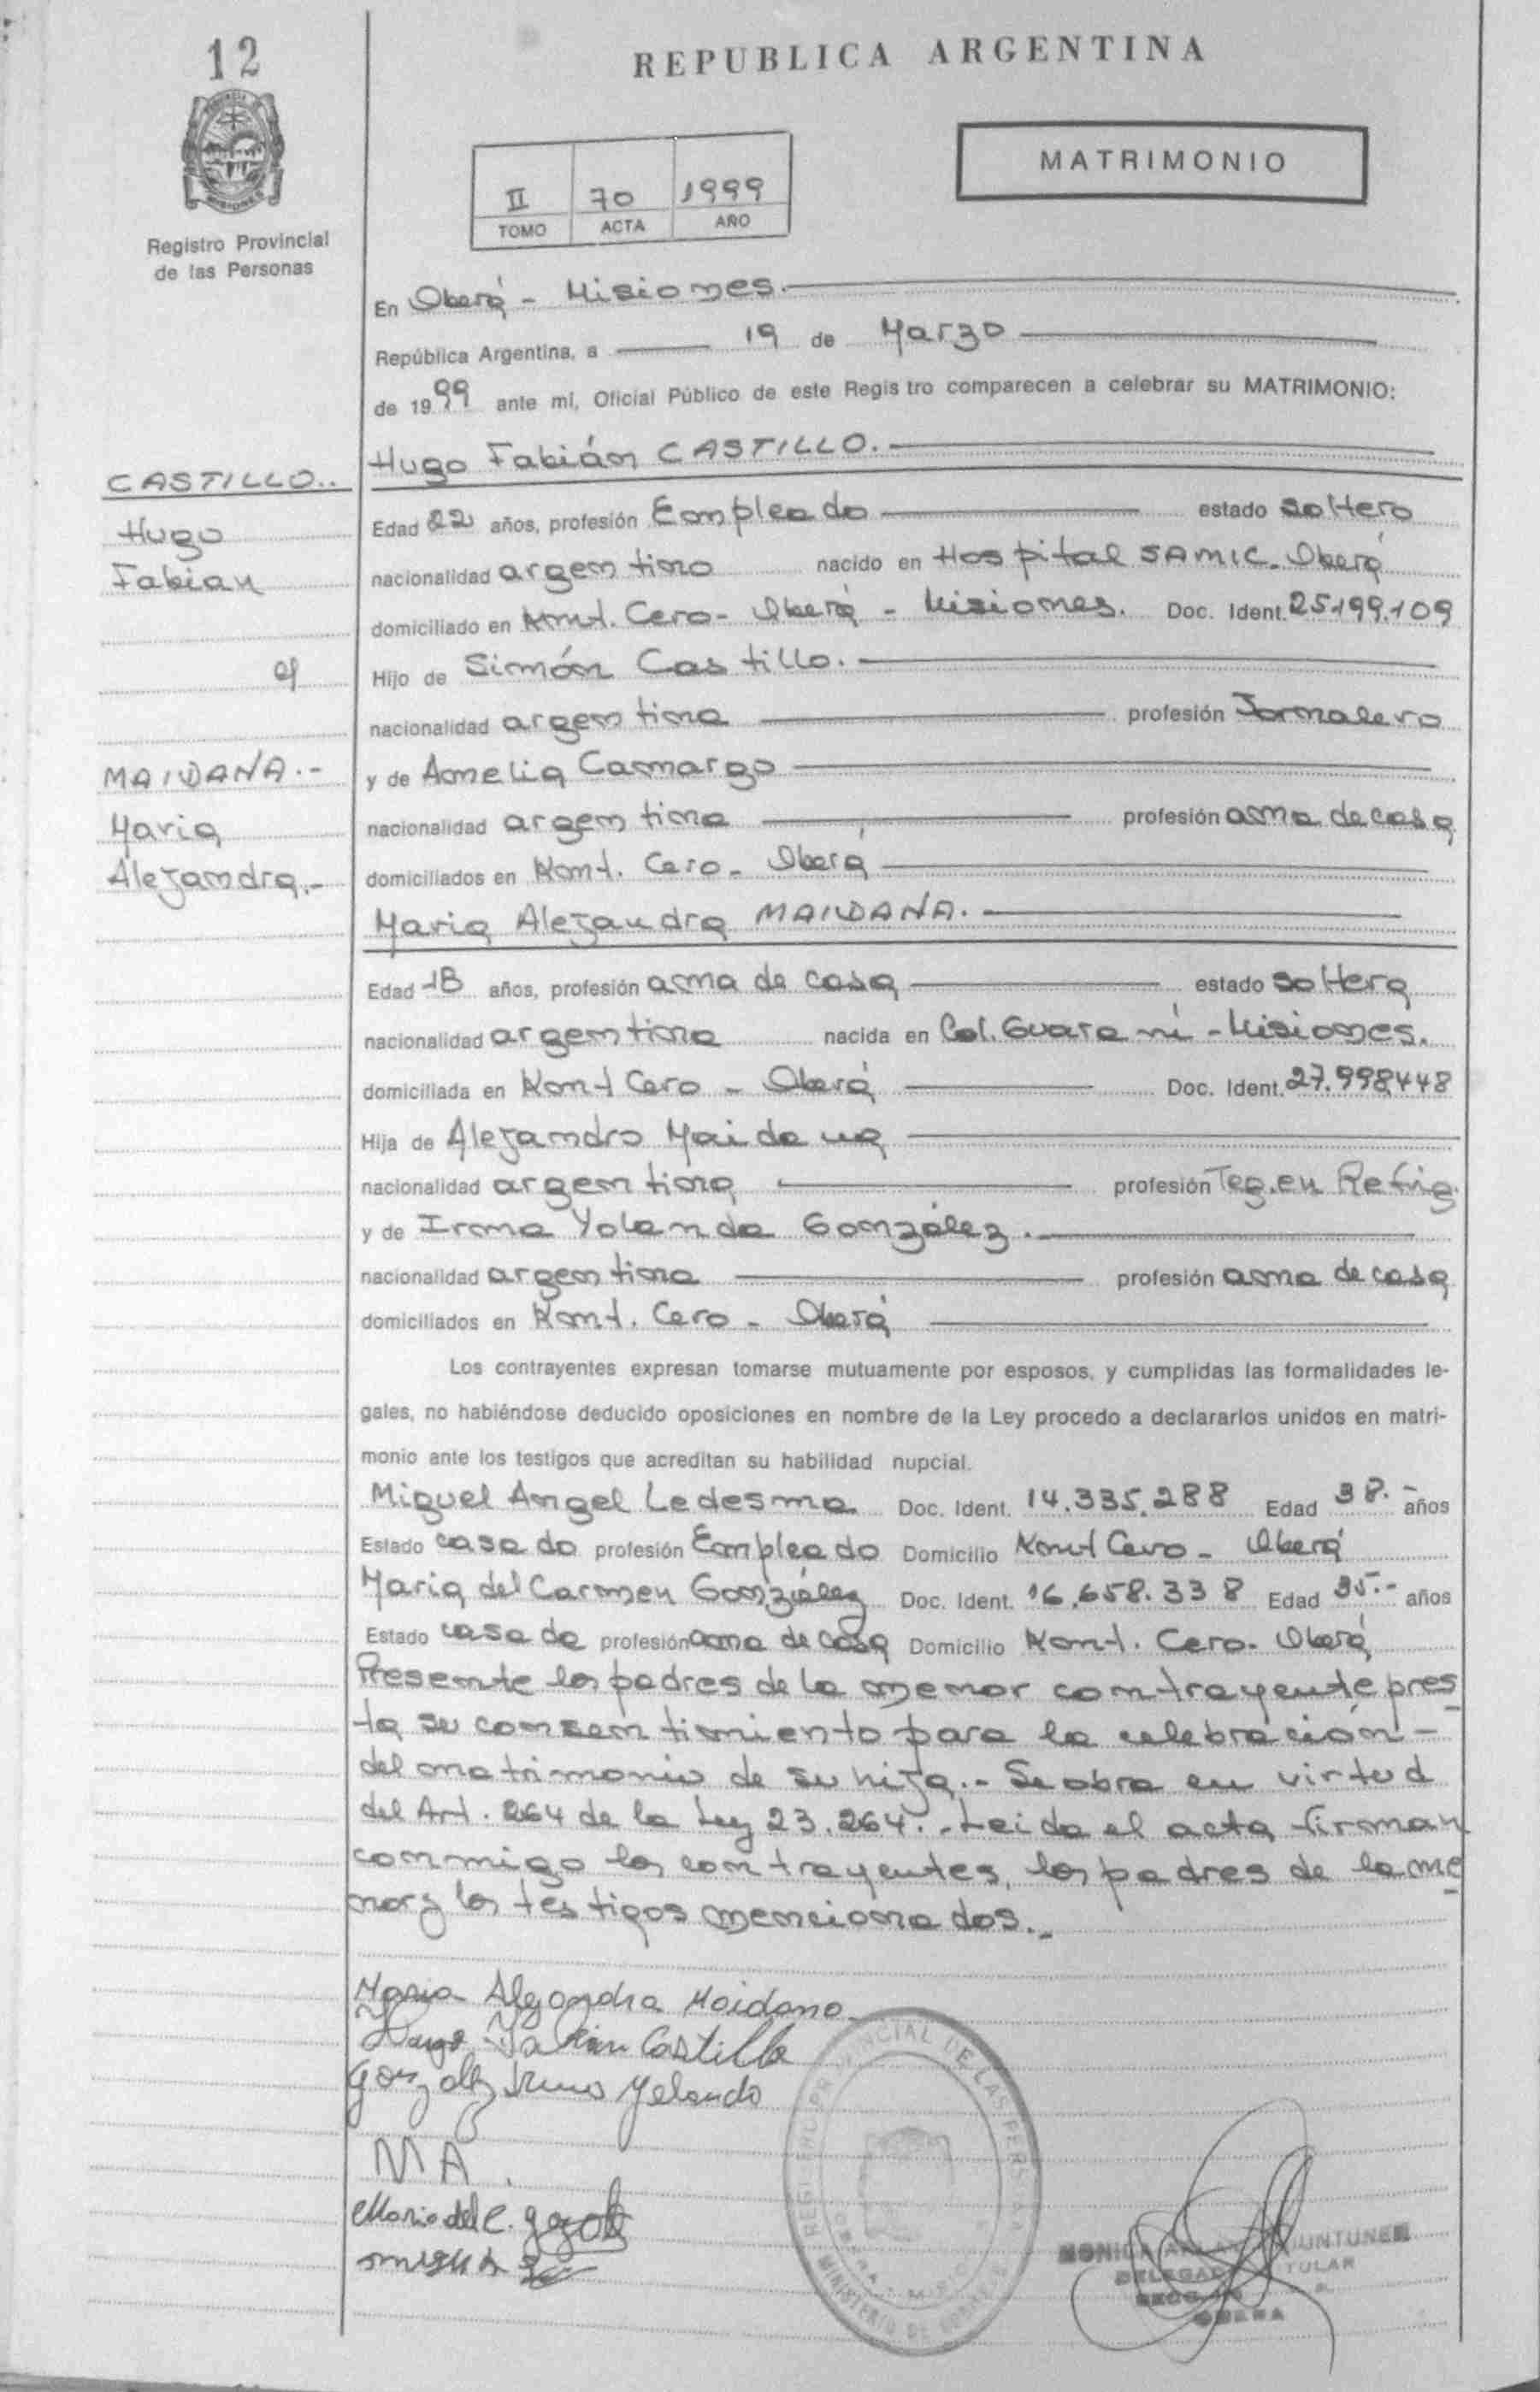 12
REPUBLICA ARGENTINA
MATRIMONIO
II 70 1999
TOMO ACTA AÑO
MISIONES
Registro Provincial
de las Personas
En Oberá - Misiones.
República Argentina, a 19 de Marzo
de 1999 ante mí, Oficial Público de este Regis tro comparecen a celebrar su MATRIMONIO:
Hugo Fabián CASTILLO.
CASTILLO..
Hugo
Fabian
Edad 22 años, profesión Empleado estado soltero
nacionalidad argentino nacido en Hospital SAMIC. Oberá
domiciliado en Cero- Oberá - Misiones. Doc. Ident. 25.199.109
Hijo de Simón Castillo.
nacionalidad argentina profesión Jornalero
y de Amelia Camargo
nacionalidad argentina profesión ama de casa
domiciliados en Cero - Oberá
MAIDANA.-
Maria
Alejandra.-
Maria Alejandra MAIDANA.
Edad 18 años, profesión ama de casa estado soltera
nacionalidad argentina nacida en Col. Guaraní - Misiones.
domiciliada en Cero - Oberá Doc. Ident. 27.998.448
Hija de Alejandro Maidana
nacionalidad argentina profesión en Refrig.
y de Irma Yolanda González.
nacionalidad argentina profesión ama de casa
domiciliados en Cero - Oberá
Los contrayentes expresan tomarse mutuamente por esposos, y cumplidas las formalidades le-
gales, no habiéndose deducido oposiciones en nombre de la Ley procedo a declararlos unidos en matri-
monio ante los testigos que acreditan su habilidad nupcial.
Miguel Angel Ledesma Doc. Ident. 14.335.288 Edad 38.- años
Estado casado profesión Empleado Domicilio Cero - Oberá
Maria del Carmen González Doc. Ident. 16.658.338 Edad 35.- años
Estado casada profesión ama de casa Domicilio Cero- Oberá
Presente los padres de la menor contrayente pres
ta su consentimiento para la celebración -
del matrimonio de su hija.- Se obra en virtud
del Art. 264 de la Ley 23.264.- Leida el acta firman
conmigo los contrayentes, los padres de la me
nor y los testigos mencionados.-
Maria Alejandra Maidana
Hugo Fabian Castillo
Gonzalez Irma Yolanda
MA.
Maria del C.
REGISTRO PROVINCIAL DE LAS PERSONAS
MINISTERIO DE GOBIERNO
MONICA
TITULAR
OBERA